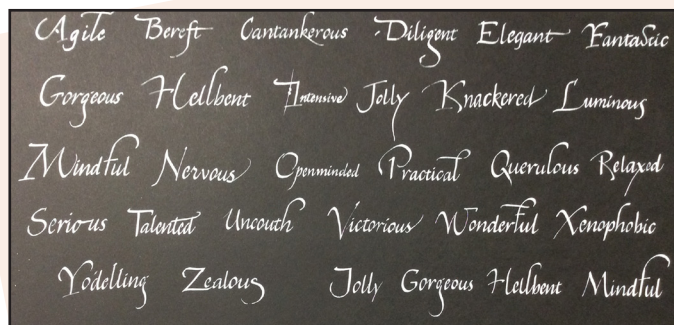 Agile Bereft Cantankerous Diligent Elegant Fantastic
Gorgeous Hellbent Intensive Jolly Knackered Luminous
Mindful Nervous Openminded Practical Querulous Relaxed
Serious Talented Uncouth Victorious Wonderful Xenophobic
Yodelling Zealous Jolly Gorgeous Hellbent Mindful